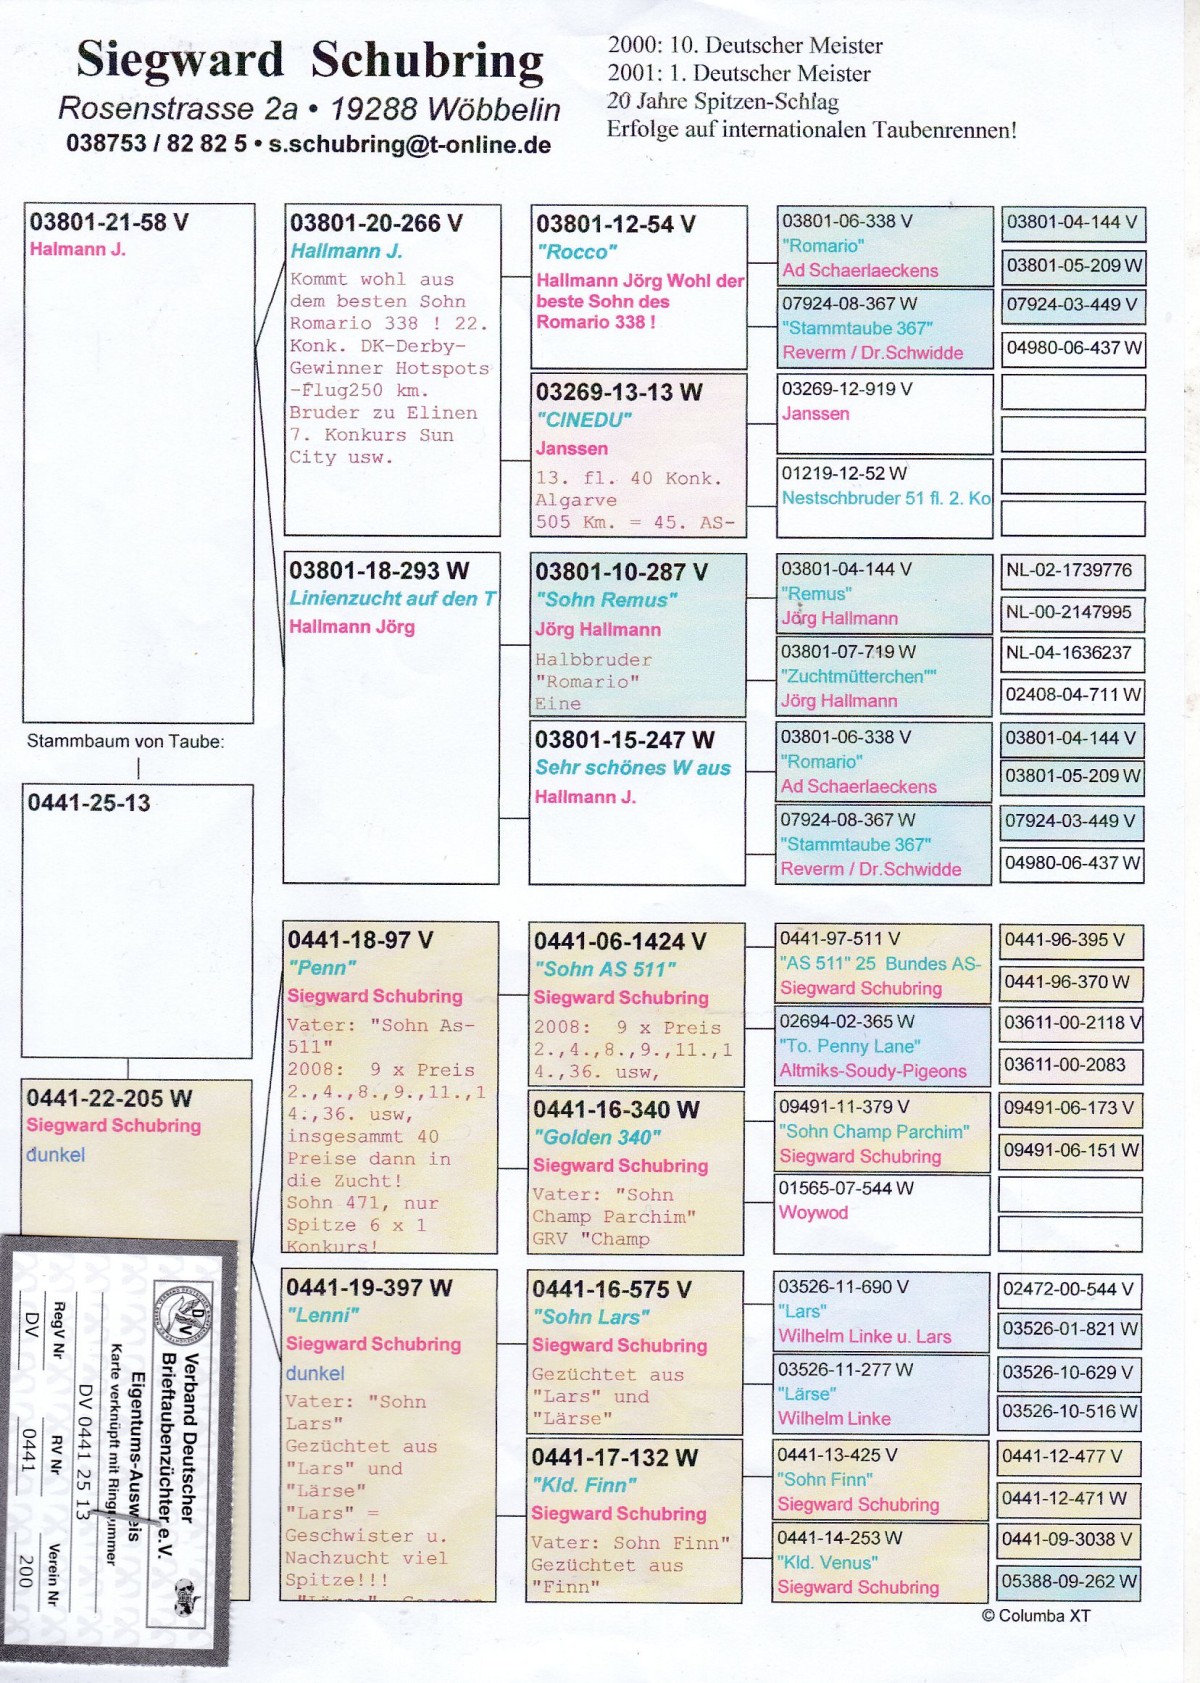 Siegward Schubring
Rosenstrasse 2a • 19288 Wöbbelin
038753 / 82 82 5 • s.schubring@t-online.de
2000: 10. Deutscher Meister
2001: 1. Deutscher Meister
20 Jahre Spitzen-Schlag
Erfolge auf internationalen Taubenrennen!
03801-21-58 V
Halmann J.
Stammbaum von Taube:
0441-25-13
0441-22-205 W
Siegward Schubring
dunkel
03801-20-266 V
Hallmann J.
Kommt wohl aus
dem besten Sohn
Romario 338 ! 22.
Konk. DK-Derby-
Gewinner Hotspots
-Flug250 km.
Bruder zu Elinen
7. Konkurs Sun
City usw.
03801-18-293 W
Linienzucht auf den T
Hallmann Jörg
0441-18-97 V
"Penn"
Siegward Schubring
Vater: "Sohn As-
511"
2008: 9 x Preis
2.,4.,8.,9.,11.,1
4.,36. usw,
insgesammt 40
Preise dann in
die Zucht!
Sohn 471, nur
Spitze 6 x 1
Konkurs!
0441-19-397 W
"Lenni"
Siegward Schubring
dunkel
Vater: "Sohn
Lars"
Gezüchtet aus
"Lars" und
"Lärse"
"Lars" =
Geschwister u.
Nachzucht viel
Spitze!!!
03801-12-54 V
"Rocco"
Hallmann Jörg Wohl der
beste Sohn des
Romario 338 !
03269-13-13 W
"CINEDU"
Janssen
13. fl. 40 Konk.
Algarve
505 Km. = 45. AS-
03801-10-287 V
"Sohn Remus"
Jörg Hallmann
Halbbruder
"Romario"
Eine
03801-15-247 W
Sehr schönes W aus
Hallmann J.
0441-06-1424 V
"Sohn AS 511"
Siegward Schubring
2008: 9 x Preis
2.,4.,8.,9.,11.,1
4.,36. usw,
0441-16-340 W
"Golden 340"
Siegward Schubring
Vater: "Sohn
Champ Parchim"
GRV "Champ
0441-16-575 V
"Sohn Lars"
Siegward Schubring
Gezüchtet aus
"Lars" und
"Lärse"
0441-17-132 W
"Kld. Finn"
Siegward Schubring
Vater: Sohn Finn"
Gezüchtet aus
"Finn"
03801-06-338 V
"Romario"
Ad Schaerlaeckens
07924-08-367 W
"Stammtaube 367"
Reverm / Dr.Schwidde
03269-12-919 V
Janssen
01219-12-52 W
Nestschbruder 51 fl. 2. Ko
03801-04-144 V
"Remus"
Jörg Hallmann
03801-07-719 W
"Zuchtmütterchen""
Jörg Hallmann
03801-06-338 V
"Romario"
Ad Schaerlaeckens
07924-08-367 W
"Stammtaube 367"
Reverm / Dr.Schwidde
0441-97-511 V
"AS 511" 25 Bundes AS-
Siegward Schubring
02694-02-365 W
"To. Penny Lane"
Altmiks-Soudy-Pigeons
09491-11-379 V
"Sohn Champ Parchim"
Siegward Schubring
01565-07-544 W
Woywod
03526-11-690 V
"Lars"
Wilhelm Linke u. Lars
03526-11-277 W
"Lärse"
Wilhelm Linke
0441-13-425 V
"Sohn Finn"
Siegward Schubring
0441-14-253 W
"Kld. Venus"
Siegward Schubring
03801-04-144 V
03801-05-209 W
07924-03-449 V
04980-06-437 W
NL-02-1739776
NL-00-2147995
NL-04-1636237
02408-04-711 W
03801-04-144 V
03801-05-209 W
07924-03-449 V
04980-06-437 W
0441-96-395 V
0441-96-370 W
03611-00-2118 V
03611-00-2083
09491-06-173 V
09491-06-151 W
02472-00-544 V
03526-01-821 W
03526-10-629 V
03526-10-516 W
0441-12-477 V
0441-12-471 W
0441-09-3038 V
05388-09-262 W
© Columba XT
Verband Deutscher
Brieftaubenzüchter e.V.
Eigentums-Ausweis
Karte verknüpft mit Ringnummer
DV 0441 25 13
RegV Nr
RV Nr
Verein Nr
DV
0441
200